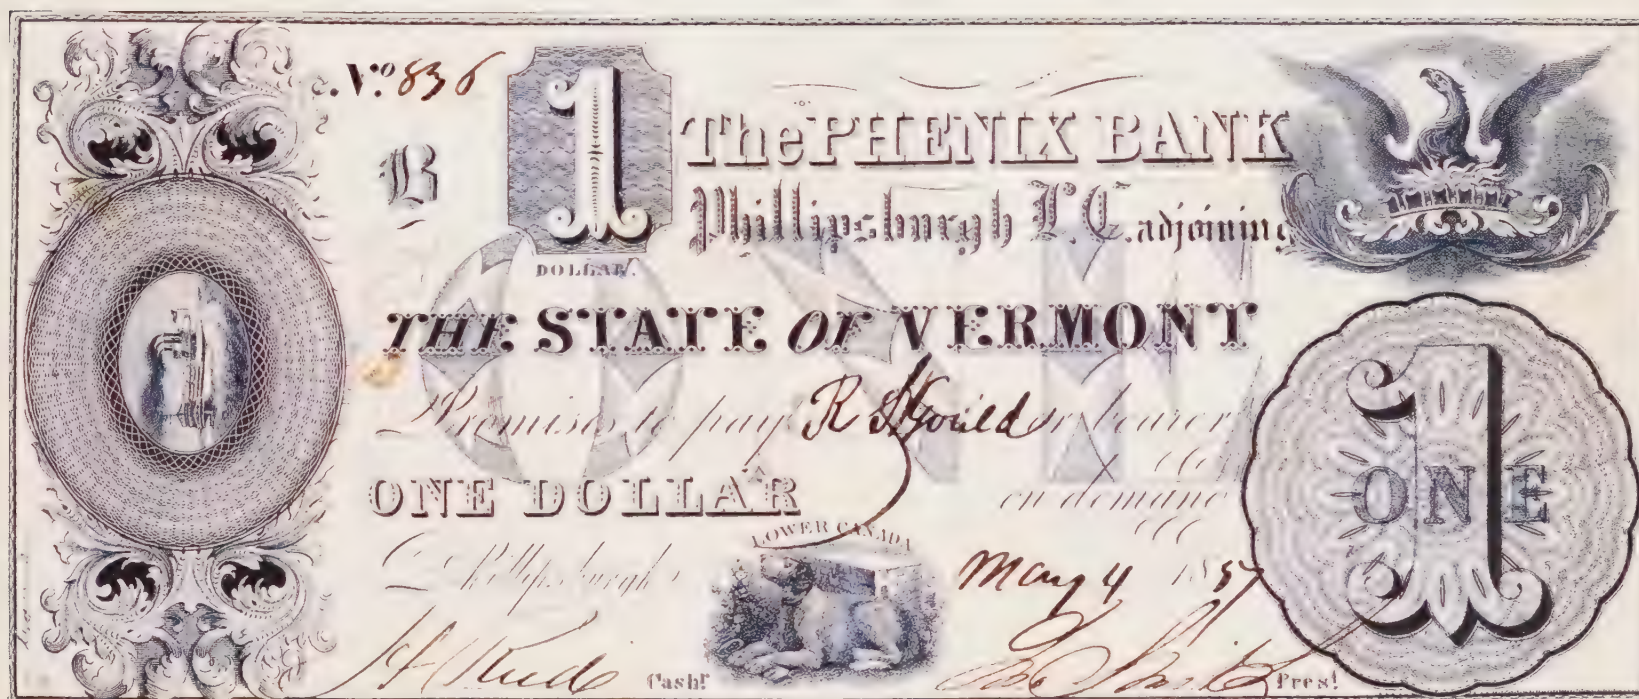 No. 836
B
1
DOLLAR.
The PHENIX BANK
Phillipsburgh L. C. adjoining
THE STATE OF VERMONT
Promises to pay R S Gould or bearer
ONE DOLLAR on demand
LOWER CANADA
Phillipsburgh May 4 18
Cashr.
Prest.
1
ONE